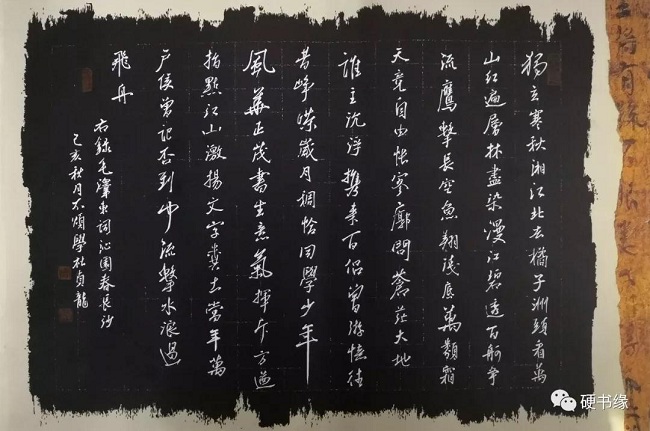 獨立寒秋湘江北去橘子洲頭看萬
山紅遍層林盡染漫江碧透百舸爭
流鷹擊長空魚翔淺底萬類霜
天竟自由悵寥廓問蒼茫大地
誰主沉浮攜來百侶曾游憶往
昔崢嶸歲月稠恰同學少年
風華正茂書生意氣揮斥方遒
指點江山激揚文字糞土當年萬
戶侯曾記否到中流擊水浪遏
飛舟
右錄毛澤東詞沁園春長沙
己亥秋月不煩杜貞龍
硬书缘